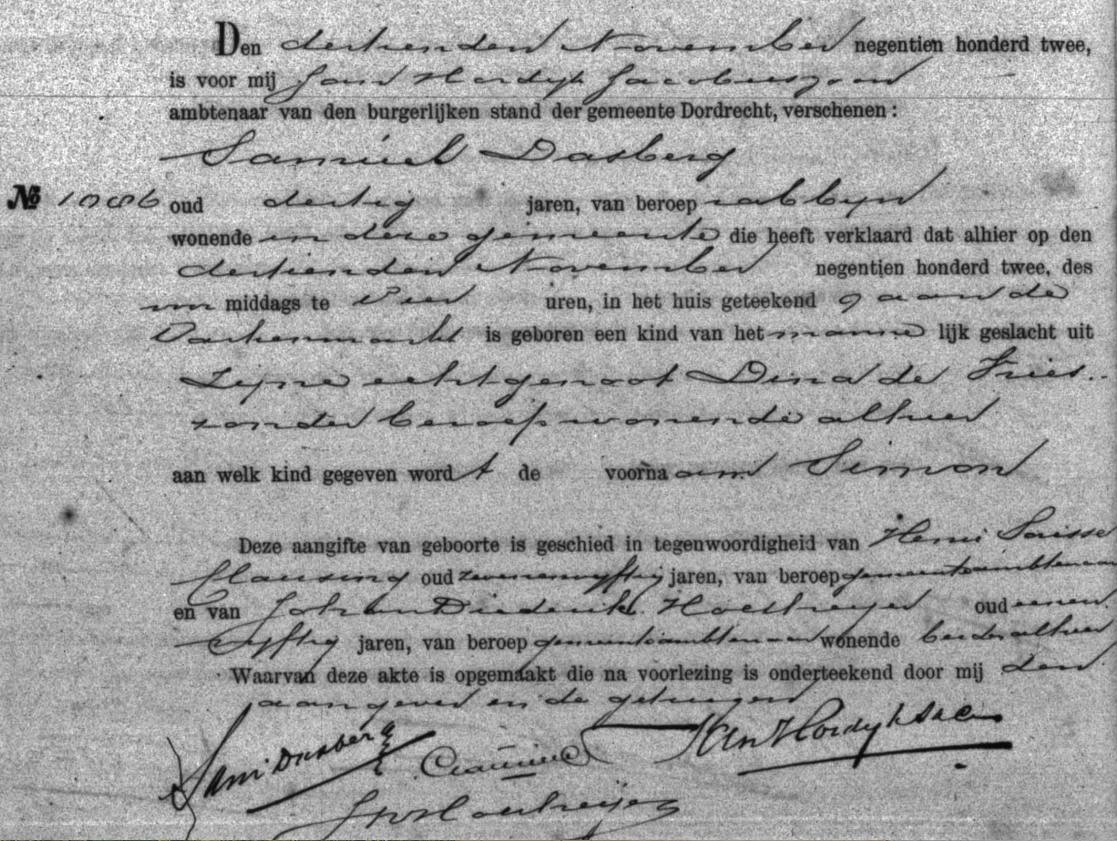 Den dertienden November negentien honderd twee,
is voor mij Jan Hordijk Jacobuszoon
ambtenaar van den burgerlijken stand der gemeente Dordrecht, verschenen:
Samuel Dasberg
№ 1086 oud dertig jaren, van beroep rabbyn
wonende in deze gemeente die heeft verklaard dat alhier op den
dertienden November negentien honderd twee, des
middags te vier uren, in het huis geteekend 9 aan de
Varkenmarkt is geboren een kind van het manne lijk geslacht uit
zijne echtgenoot Dina de Vries..
zonder beroep wonende alhier
aan welk kind gegeven word t de voorna am Simon
Deze aangifte van geboorte is geschied in tegenwoordigheid van Henri
Clausing oud zevenenvyftig jaren, van beroep gemeenteambtenaar
en van Johan Diederik oud eenen
vyftig jaren, van beroep gemeenteambtenaar wonende beiden alhier
Waarvan deze akte is opgemaakt die na voorlezing is onderteekend door mij den
aangever en de getuigen
Sam. Dasberg Jan Hordyk Jac
Clausing